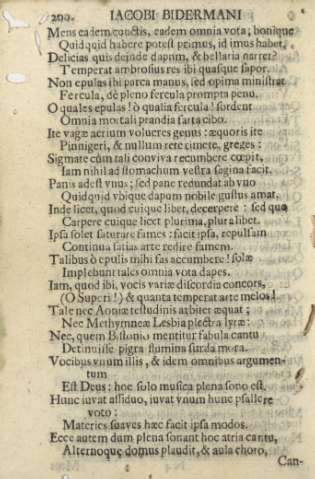 200. IACOBI BIDERMANI
Mens eadem cunctis, eadem omnia vota; bonique
Quidquid habere potest primus, id imus habet.
Delicias quis deinde dapum, & bellaria narret?
Temperat ambrosius res ibi quasque sapor.
Non epulas ibi parca manus, sed opima ministrat
Fercula, de pleno fercula prompta penu.
O quales epulas! ò qualia fercula! sordent
Omnia mortali prandia farta cibo.
Ite vagæ aërium volucres genus: æquoris ite
Pinnigeri, & nullum rete timete, greges:
Sigmate cùm tali conviva recumbere cœpit,
Iam nihil ad stomachum vestra sagina facit.
Panis adest vnus; sed pane redundat ab vno
Quidquid vbique dapum nobile gustus amat.
Inde licet, quod cuique libet, decerpere: sed quò
Carpere cuique licet plurima, plura libet.
Ipsa solet saturare fames: facit ipsa, repulsam
Continua satias arte redire famem.
Talibus ò epulis mihi fas accumbere! solæ
Implebunt tales omnia vota dapes.
Iam, quod ibi, vocis variæ discordia concors,
(O Superi!) & quanta temperat arte melos!
Tale nec Aoniæ testudinis arbiter æquat;
Nec Methymneæ Lesbia plectra lyræ:
Nec, quem Bistonio mentitur fabula cantu
Detinuisse pigra flumina surda mora.
Vocibus vnum illis, & idem omnibus argumen-
tum
Est Deus: hoc solo musica plena sono est.
Hunc iuvat assiduo, iuvat vnum hunc psallere
voto:
Materies suaves hæc facit ipsa modos.
Ecce autem dum plena sonant hoc atria cantu,
Alternoque domus plaudit, & aula choro,
Can-